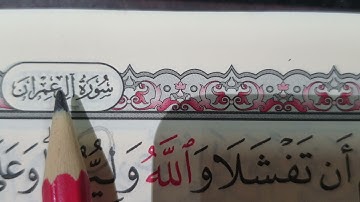 سُورَةُ آلِ عِمْرَانَ
أَن تَفْشَلَا وَٱللَّهُ وَلِيُّهُمَا وَعَلَى